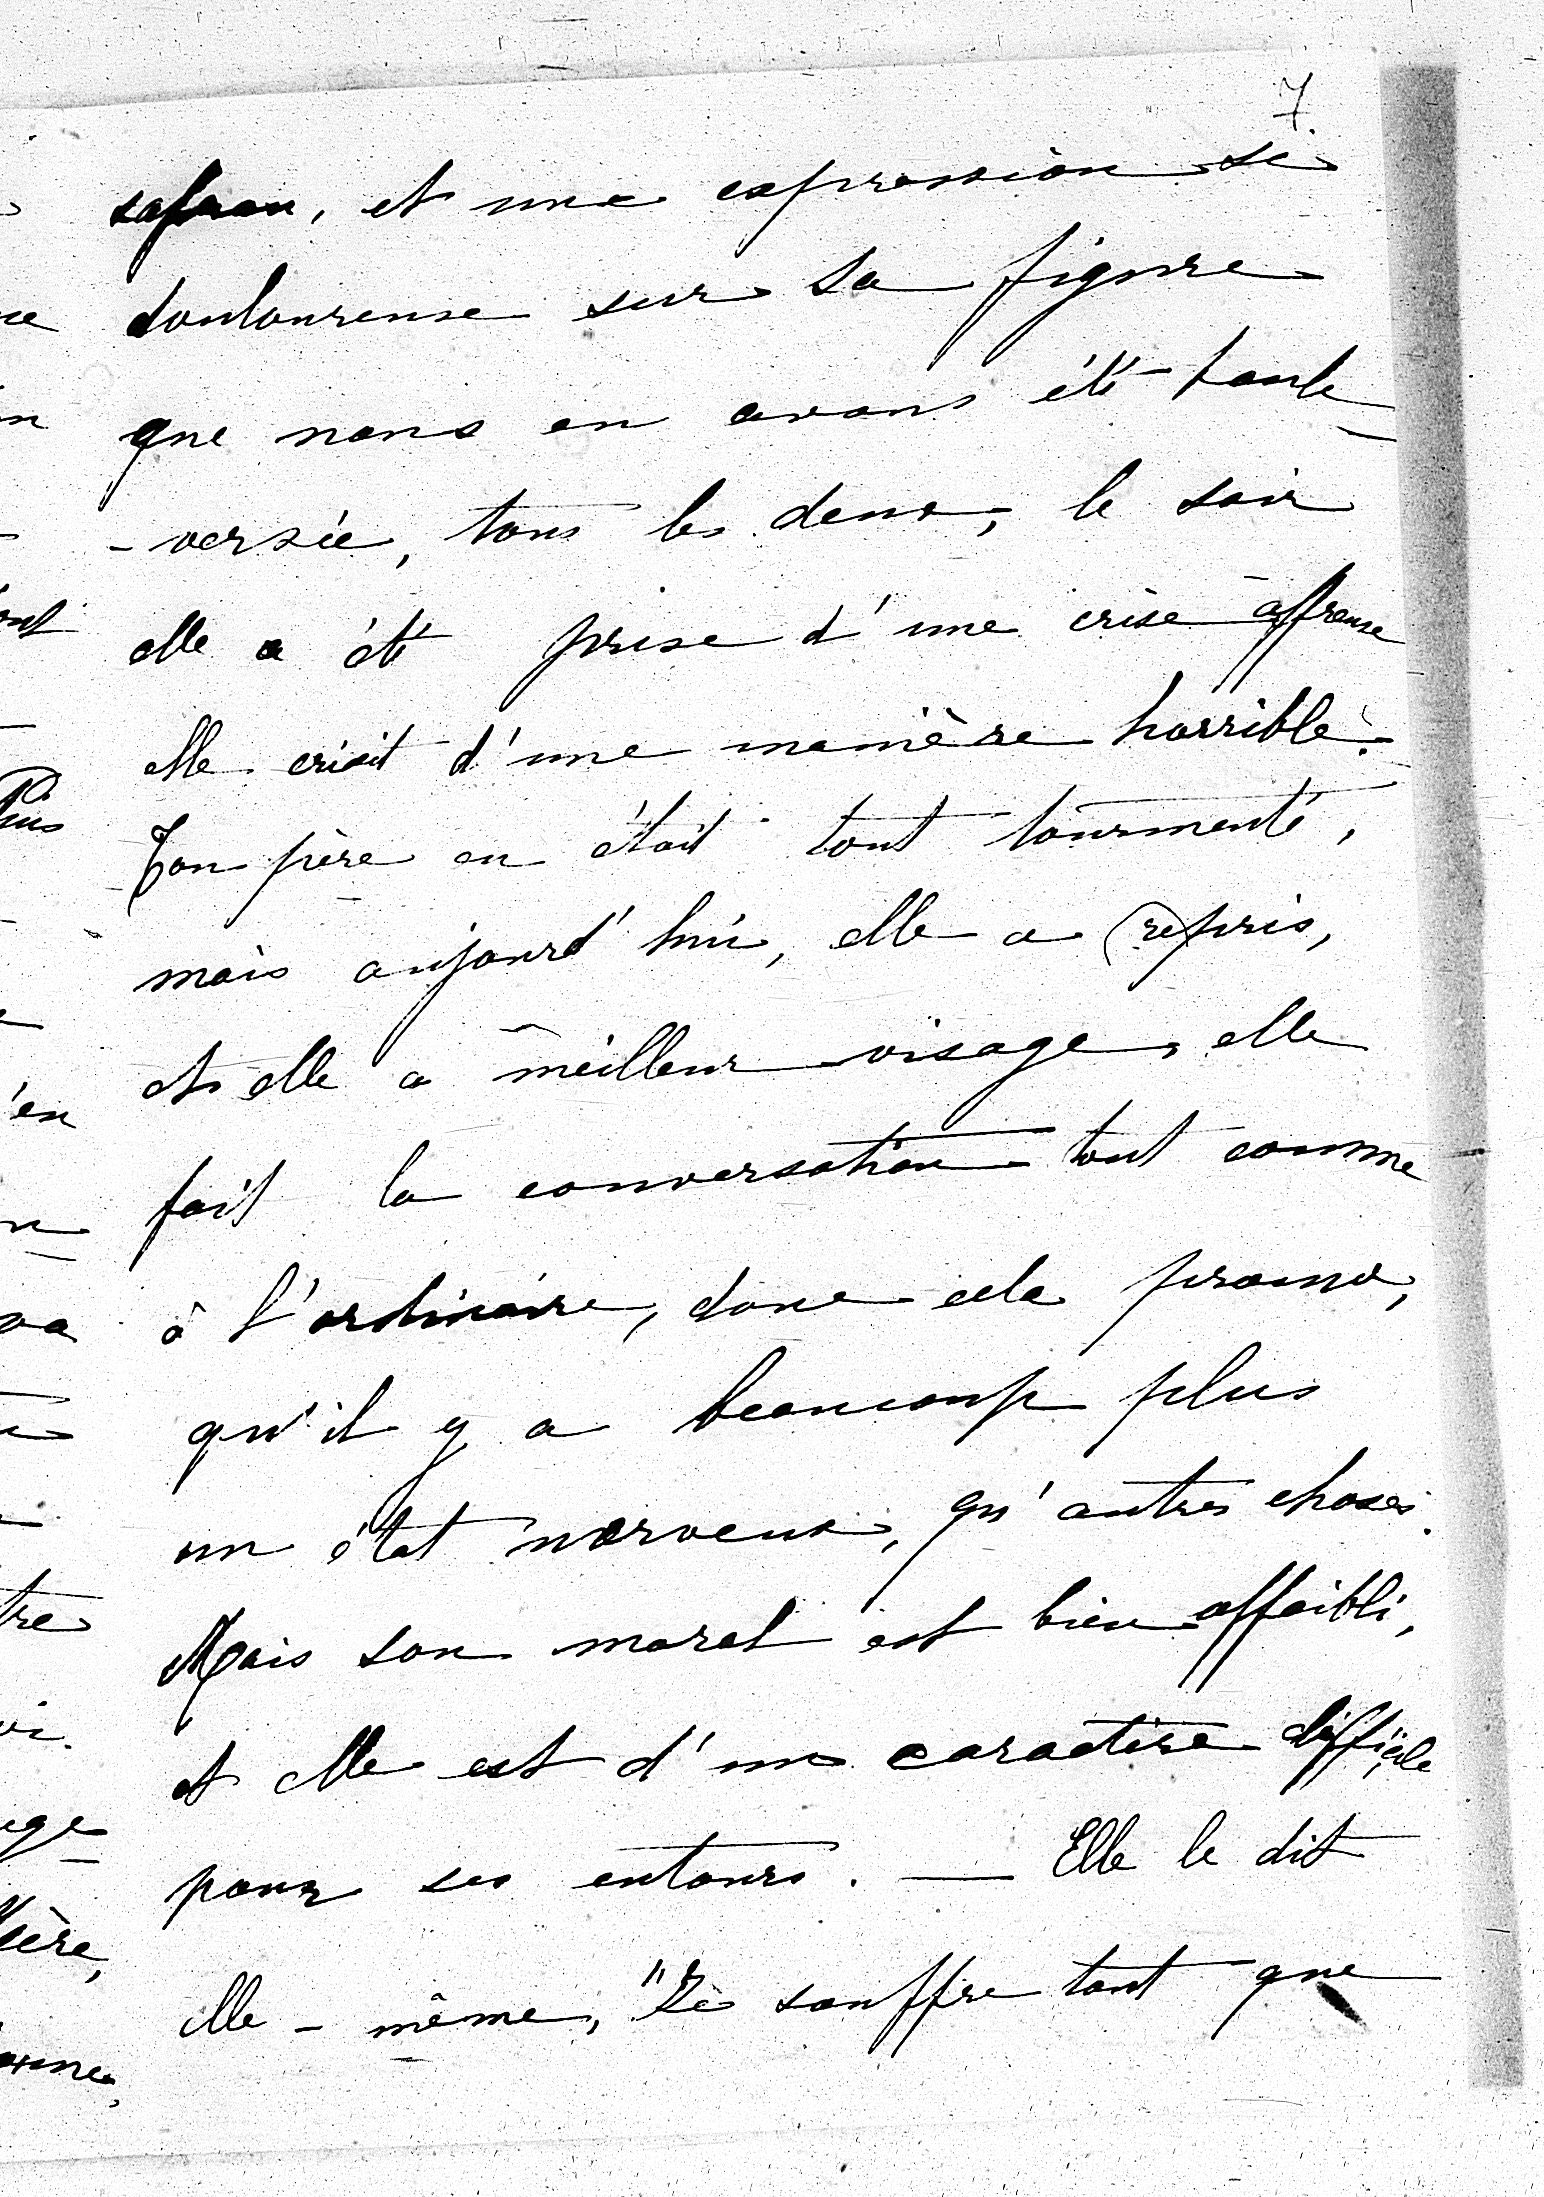 7
safran, et une expression si
douloureuse sur sa figure
que nous en avons été boule-
-versée, tous les deux, le soir
elle a été prise d'une crise affreuse
elle criait d'une manière horrible.
Ton père en était tout tourmenté,
mais aujourd'hui, elle a repris,
et elle a meilleur visage, elle
fait la conversation tout comme
à l'ordinaire, donc cela prouve,
qu'il y a beaucoup plus
un état nerveux, qu'autres choses.
Mais son moral est bien affaibli,
et elle est d'un caractère difficile
pour ses entours. — Elle le dit
elle-même, "Je souffre tant que